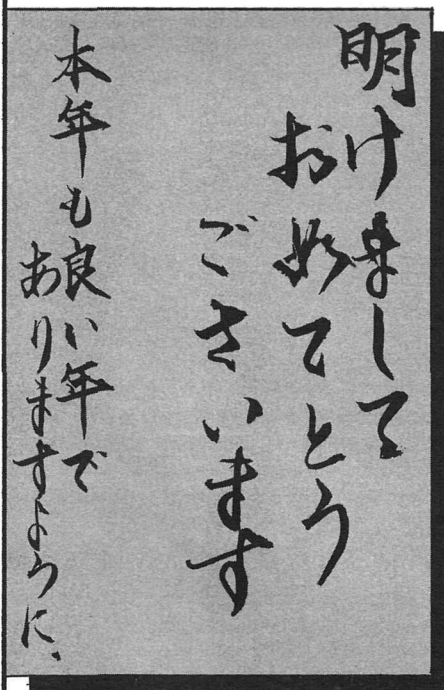 明けまして
おめてとう
ごさいます
本年も良い年で
ありますように、